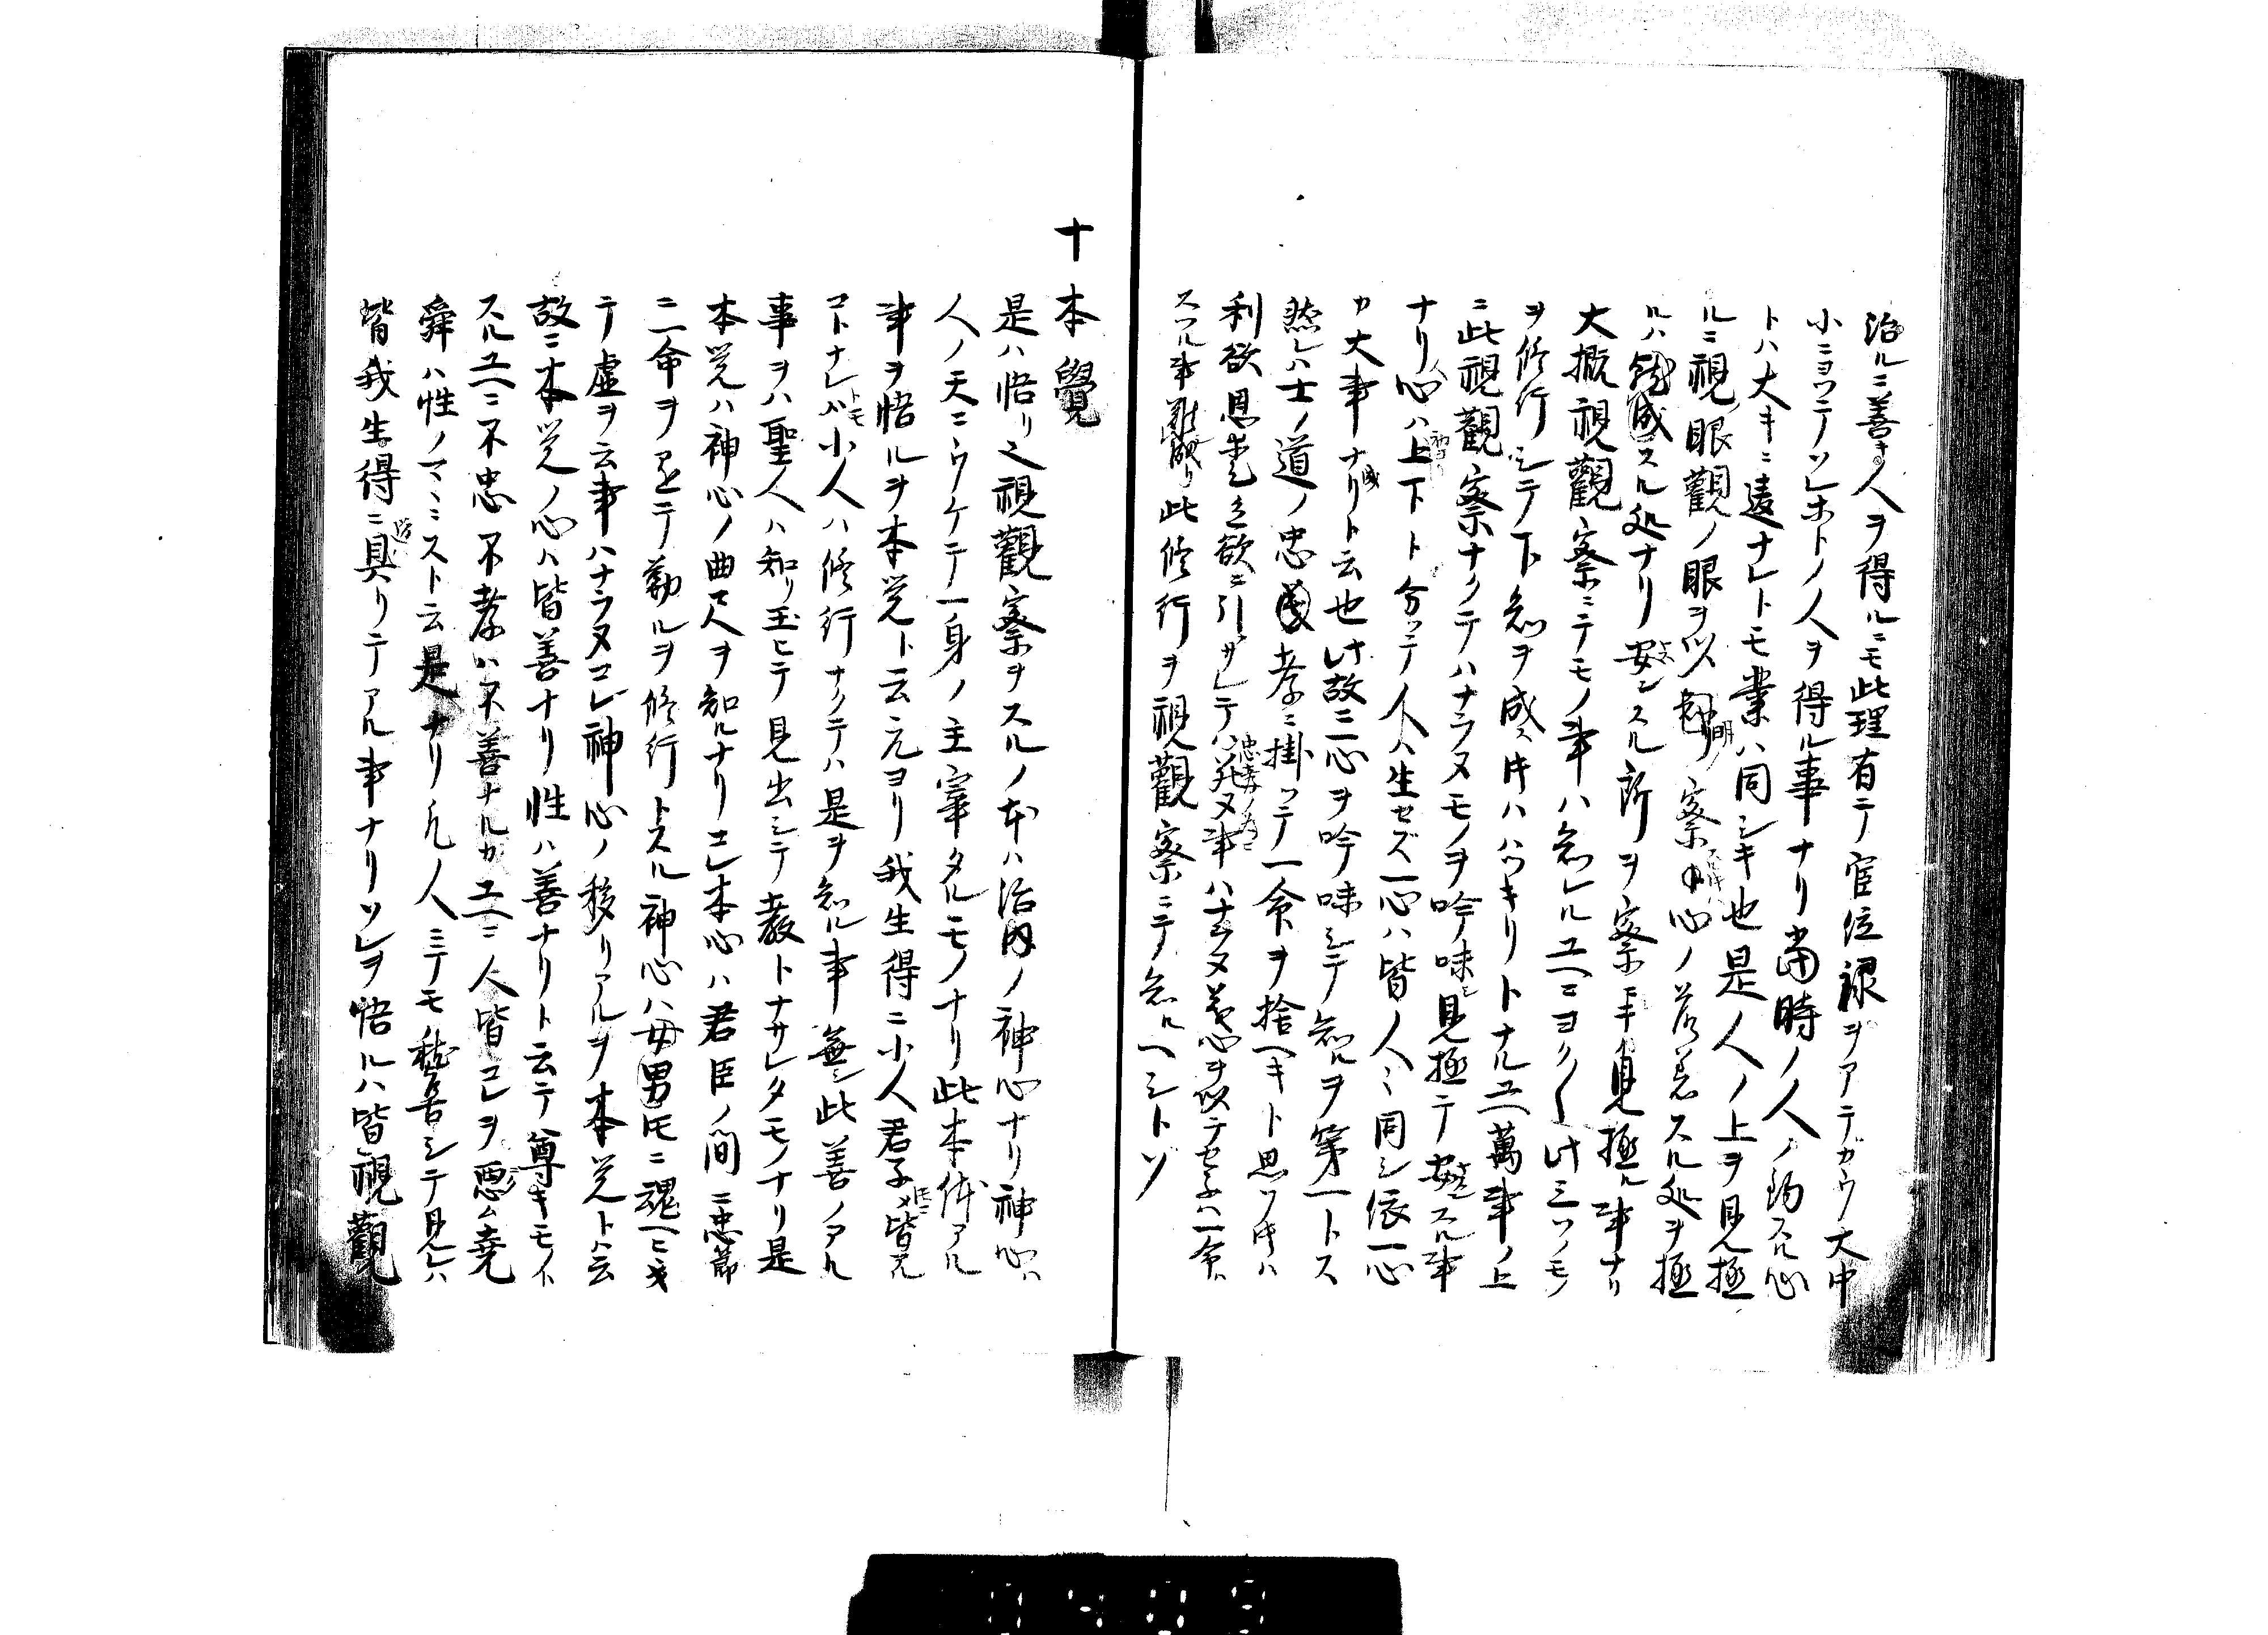 治ルニ善キ人ヲ得ルニモ此理有テ官位禄ヲアテガウ大中
小ニヨツテソレホトノ人ヲ得ル事ナリ當時ノ人ノ釣スル心
トハ大キニ違ナレトモ業ハ同シキ也是人ノ上ヲ見極
ルニ視ノ眼觀ノ眼ヲ以 察 心ノ落着スル処ヲ極
ルハ 成スル処ナリ安ンスル所ヲ察 見極ル事ナリ
大概視觀察ニテモノ事ハ知レルユヘニヨク〱此三ツノモノ
ヲ修行シテ下知ヲ成ス時ハハツキリトナルユヘ萬事ノ上
ニ此視觀察ナクテハナラヌモノヲ吟味シ見極テ安ンスル事
ナリ心ハ上下ト分ツテ人ハ生セズ一心ハ皆人々同シ依一心
カ大事ナリト云也此故ニ心ヲ吟味シテ知ルヲ第一トス
然レハ士ノ道ノ忠 孝ニ掛ツテ一命ヲ捨ヘキト思ツ時ハ
利欲恩愛之欲ニ引サレテハ ヌ事ハナラヌ義心ヲ以テセネハ一命ハ
スツル事難成リ此修行ヲ視觀察ニテ知ルヘシトソ
十 本覺
是ハ悟リ之視觀察ヲスルノ本ハ治内ノ神心ナリ神心ハ
人ノ天ニウケテ一身ノ主宰タルモノナリ此本体アル
事ヲ悟ルヲ本覚ト云元ヨリ我生得ニ小人君子 皆元
コトナレトモ小人ハ修行ナクテハ是ヲ知ル事無シ此善ノアル
事ヲハ聖人ハ知リ玉ヒテ見出シテ教トナサレタモノナリ是
本覚ハ神心ノ曲尺ヲ知ルナリコレ本心ハ君臣ノ間ニ忠節
ニ一命ヲ テ勤ルヲ修行トスル神心ハ女男トモニ魂ヘヒヾキ
テ虚ヲ云事ハナラヌコレ神心ノ移リアルヲ本覚ト云
故ニ本覚ノ心ハ皆善ナリ性ハ善ナリト云テ尊キモノト
スルユヘニ不忠不孝ハ不善ナルカユヘニ人皆コレヲ悪ム堯
舜ハ性ノマヽニスト云是ナリ凡人ニテモ稽古シテ見レハ
皆我生得ニ具リテアル事ナリソレヲ悟ルハ皆視觀